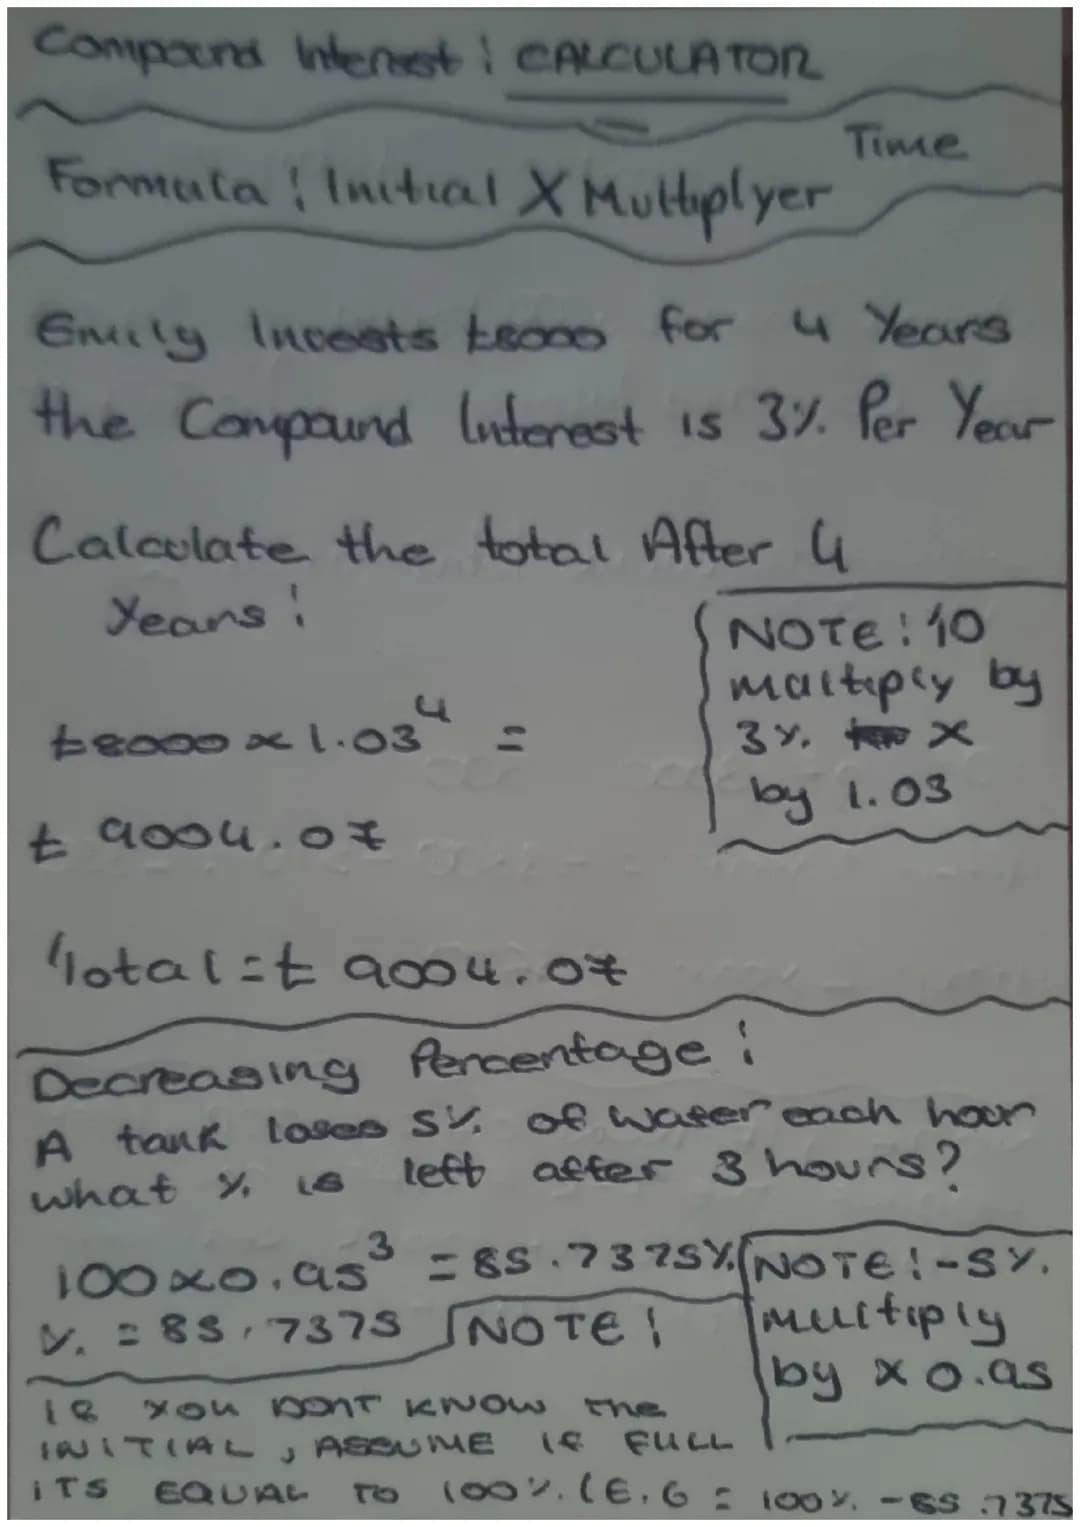 Compound Interest : CALCULATOR
Time
Formula : Initial X Multiplyer
Emily Invests £8000 for 4 Years
the Compound Interest is 3% Per Year
Calculate the total After 4
Years :
NOTE : TO
multiply by
3% X
by 1.03
£8000 x 1.03⁴ =
£ 9004.07
Total = £ 9004.07
Decreasing Percentage :
A tank loses 5% of water each hour
what % is left after 3 hours?
100 x 0.95³ = 85.7375%
NOTE : -5%
multiply
by x 0.95
% = 85.7375
NOTE :
IF YOU DONT KNOW THE
INITIAL, ASSUME IF FULL
ITS EQUAL TO 100%. (E.G = 100% - 85.7375